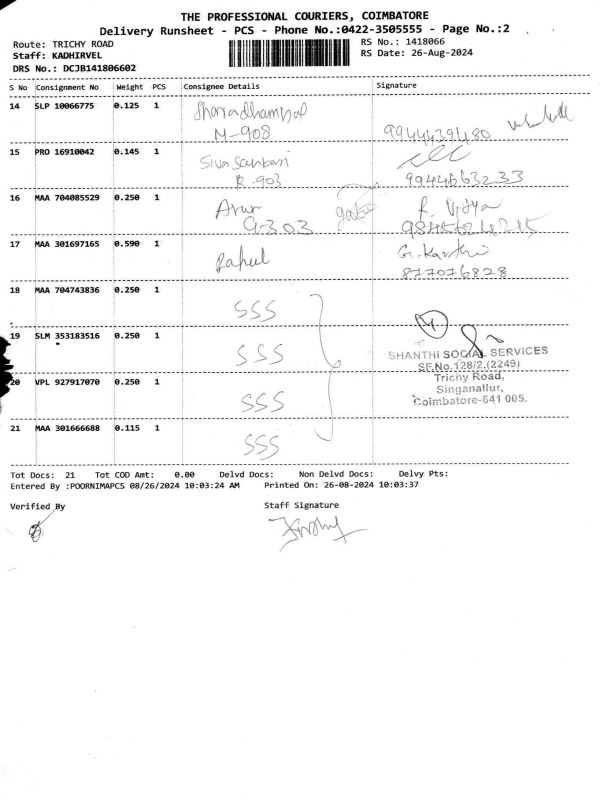 THE PROFESSIONAL COURIERS, COIMBATORE
Delivery Runsheet - PCS - Phone No.:0422-3505555 - Page No.:2
Route: TRICHY ROAD RS No.: 1418066
Staff: KADHIRVEL RS Date: 26-Aug-2024
DRS No.: DCJB141806602
S No Consignment No Weight PCS Consignee Details Signature
14 SLP 10066775 0.125 1
M-908 9944439480
15 PRO 16910042 0.145 1 Siva Sankari
R-903 9944663233
16 MAA 704085529 0.250 1 Arun R. Vijya
G-303
17 MAA 301697165 0.590 1 Rahul G. Karthi
877076828
18 MAA 704743836 0.250 1 SSS
4
19 SLM 353183516 0.250 1 SSS SHANTHI SOCIAL SERVICES
SF.No.128/2,(2249)
20 VPL 927917070 0.250 1 SSS Trichy Road,
Singanallur,
Coimbatore-641 005.
21 MAA 301666688 0.115 1 SSS
Tot Docs: 21 Tot COD Amt: 0.00 Delvd Docs: Non Delvd Docs: Delvy Pts:
Entered By :POORNIMAPCS 08/26/2024 10:03:24 AM Printed On: 26-08-2024 10:03:37
Verified By Staff Signature